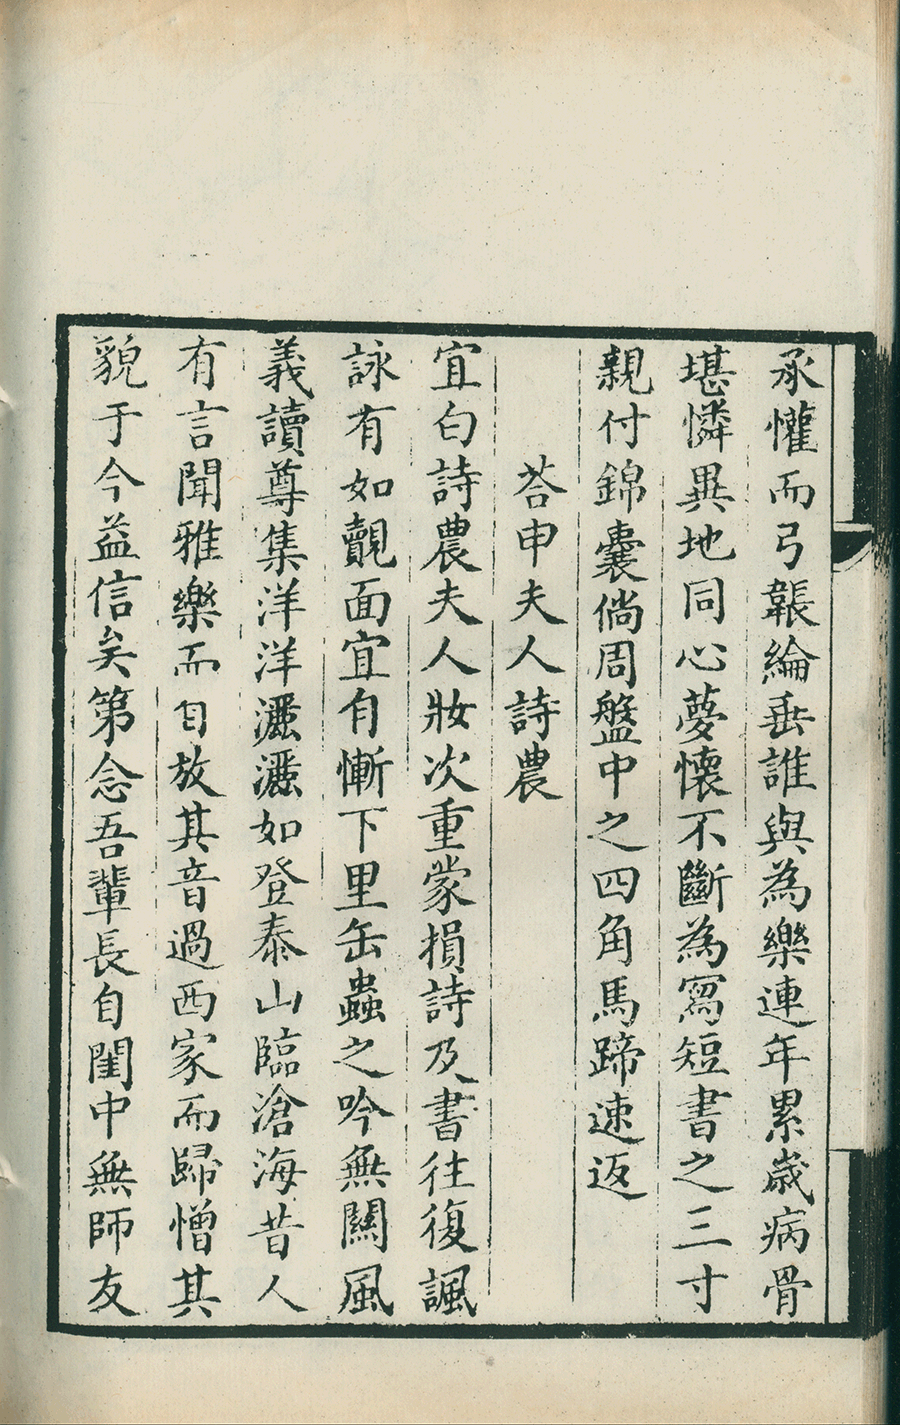 承懽而弓韔綸垂誰與為樂連年累歳病骨
堪憐異地同心夢懷不斷為寫短書之三寸
親付錦囊倘周盤中之四角馬蹄速返
荅申夫人詩農
宜白詩農夫人妝次重蒙損詩及書往復諷
詠有如覿面宜自慚下里缶蟲之吟無關風
義讀尊集洋洋灑灑如登泰山臨滄海昔人
有言聞雅樂而自放其音過西家而歸憎其
貌于今益信矣第念吾輩長自閨中無師友